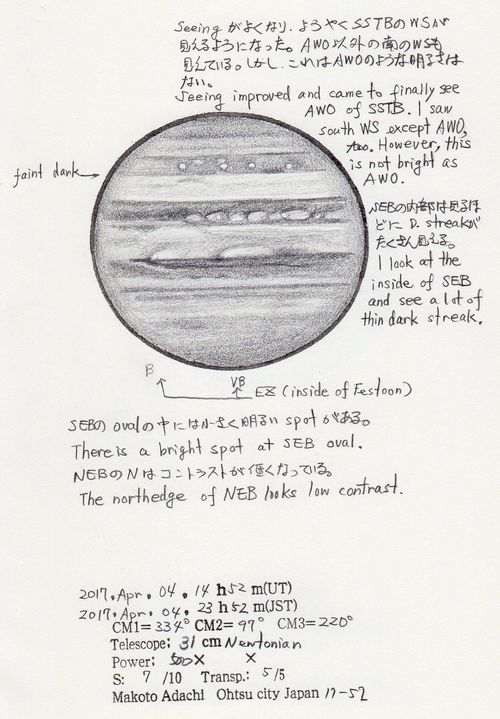 Seeing がよくなり、ようやく SSTBのWSが
見えるようになった。AWO以外の南のWSも
見えている。しかし、これはAWOのような明るさは
ない。
Seeing improved and came to finally see
AWO of SSTB. I saw
south WS except AWO,
too. However, this
is not bright as
AWO.
faint dark
SEBの内部は見るほ
どに D. streakが
たくさん見える。
I look at the
inside of SEB
and see a lot of
thin dark streak.
B
VB
EZ (inside of Festoon)
SEBの ovalの中には小さく明るい spotがある。
There is a bright spot at SEB oval.
NEBのNはコントラストが低くなっている。
The northedge of NEB looks low contrast.
2017. Apr. 04. 14 h 52 m(UT)
2017. Apr. 04. 23 h 52 m(JST)
CM1= 334° CM2= 97° CM3= 220°
Telescope: 31 cm Newtonian
Power: X X
S: 7 /10 Transp.: 5/5
Makoto Adachi Ohtsu city Japan 17-52